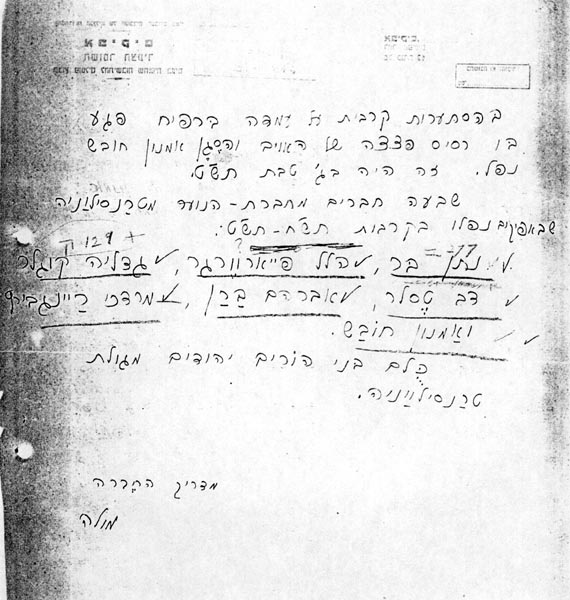 בהסתערות קרבית על עמדה ברפיח פגע
בו רסיס פצצה של האויב והסגן אמנון חובש
נפל. זה היה בג' טבת תש"ט.
שבעה חברים מחברת-הנוער מטרנסילוניה
שבאפיקים נפלו בקרבות תש"ח-תש"ט:
נתן בר, הלל פייארוורגר, גדליה קוגלר
דב טסלר, אברהם ברן, מרדכי ריינגבירץ
ואמנון חובש.
כלם בני הורים יהודים מגולת
טרנסילויניה.
מדריך החברה
מולה